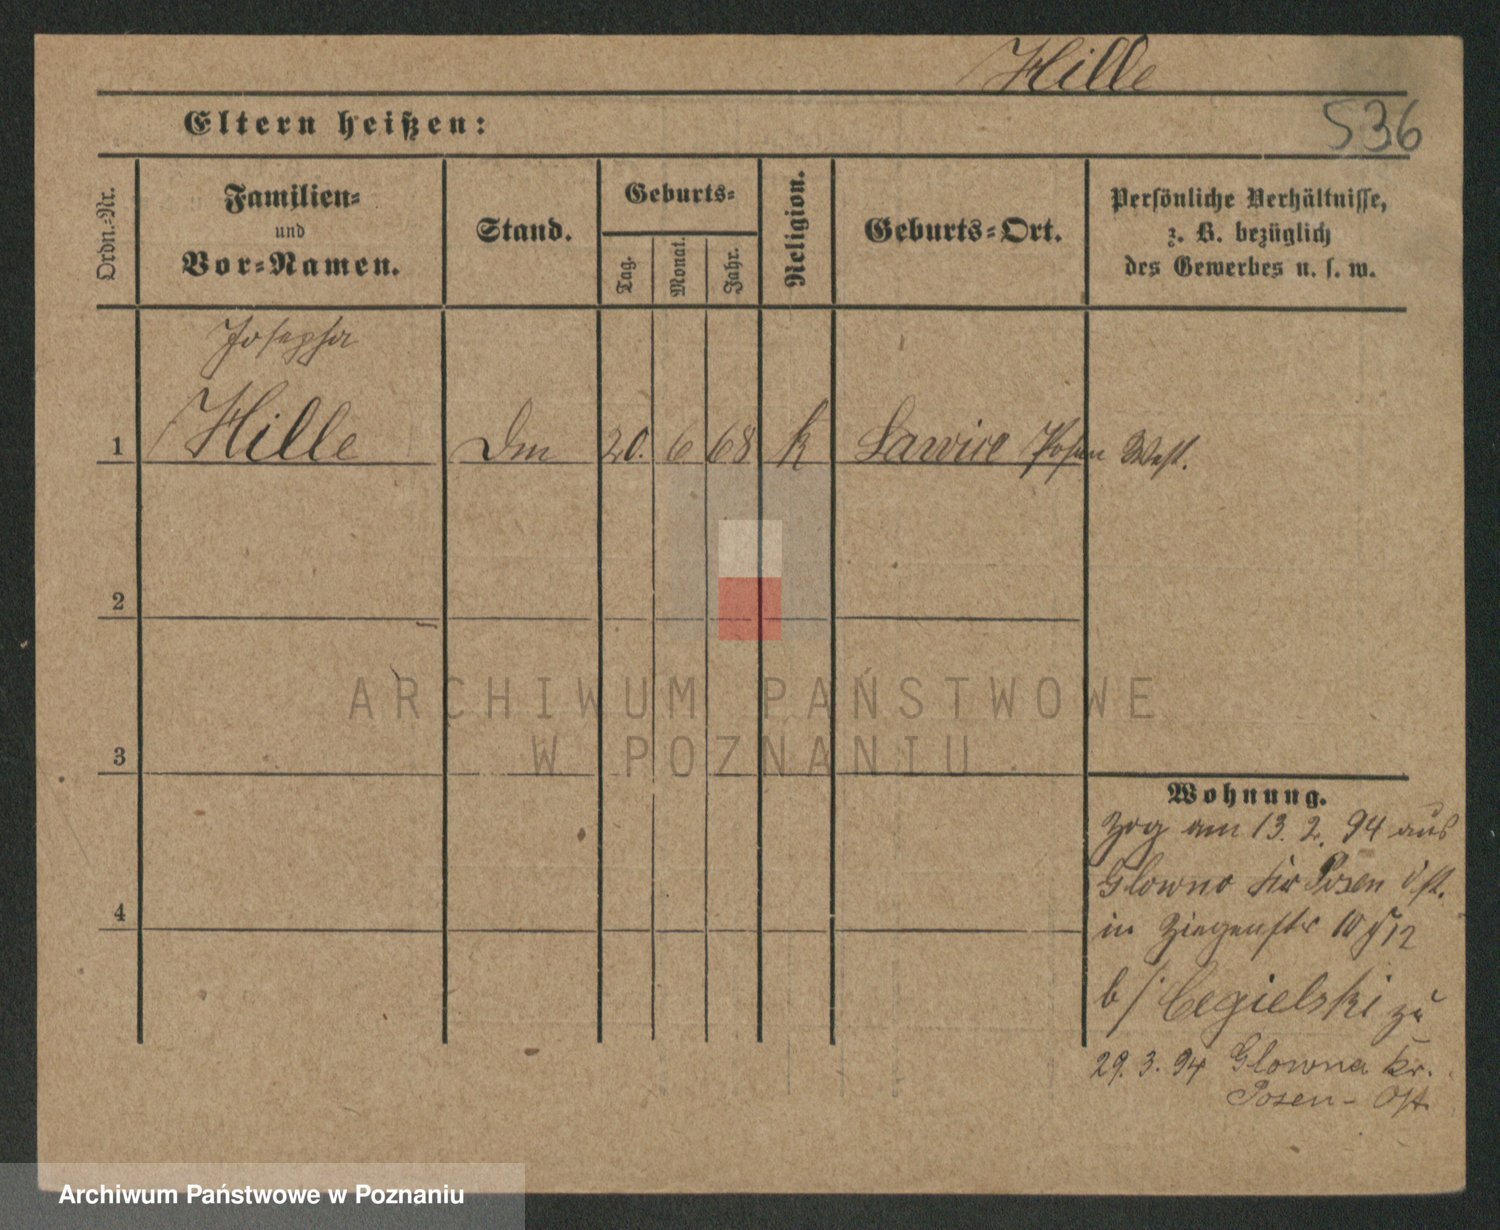 Hille
536
Eltern heißen:
Ordn.-Nr.
Familien-
und
Vor-Namen.
Stand.
Geburts-
Tag.
Monat.
Jahr.
Religion.
Geburts-Ort.
Persönliche Verhältnisse,
z. B. bezüglich
des Gewerbes u. s. w.
Josepha
1 Hille 20. 6 68 k Lawice Posen West.
2
3
4
ARCHIWUM PAŃSTWOWE
W POZNANIU
Wohnung.
Zog am 13. 2. 94 aus
Glowno Kr Posen Ost.
in Ziegenstr 10/12
b/ Cegielski zu
29. 3. 94 Glowna Kr.
Posen-Ost
Archiwum Państwowe w Poznaniu